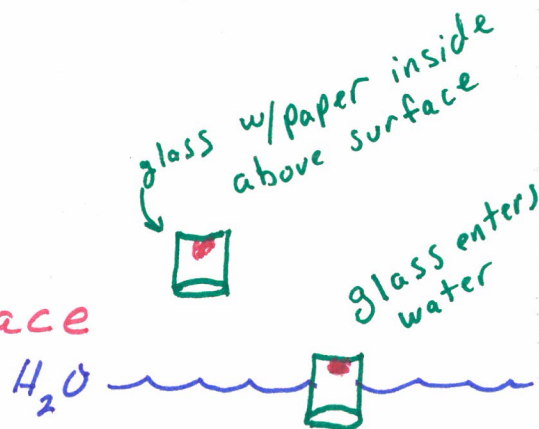 glass w/paper inside
above surface
glass enters
water
H₂O